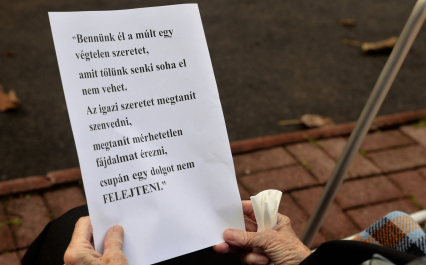 "Bennünk él a múlt egy
végtelen szeretet,
amit tőlünk senki soha el
nem vehet.
Az igazi szeretet megtanít
szenvedni,
megtanít mérhetetlen
fájdalmat érezni,
csupán egy dolgot nem
FELEJTENI."